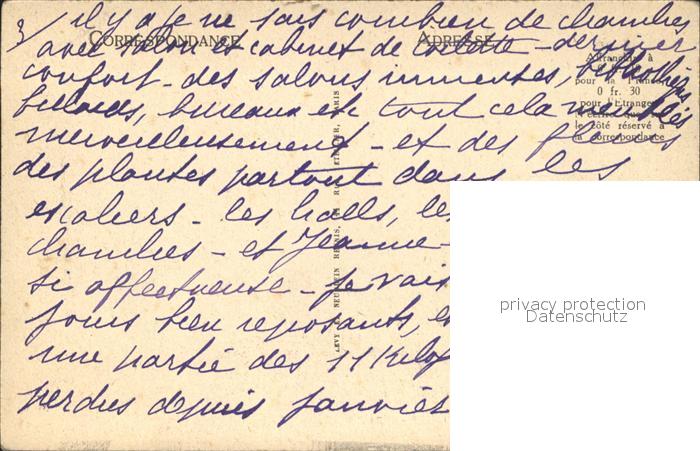 3/ il y a je ne sais combien de chambres
CORRESPONDANCE
ADRESSE
avec salon et cabinet de toilette - dernier
confort - des salons immenses, bibliothèques
billards, bureaux etc tout cela meublés
merveilleusement - et des fleurs
des plantes partout dans les
escaliers - les halls, les
chambres - et Jeanne -
si affectueuse - Je vais
jours bien reposants, et
une partie des 11 Kilog
perdus depuis janvier
Affranchir à
pour la France
0 fr. 30
pour l'Etranger
le côté réservé à
la correspondance
LEVY ET NEURDEIN REUNIS, RUE LETELLIER, PARIS
privacy protection
Datenschutz